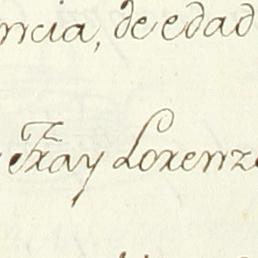 ncia, de edad
Fray Lorenzo